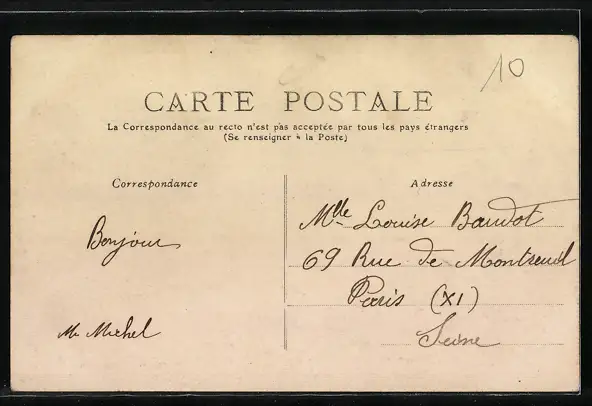 10
CARTE POSTALE
La Correspondance au recto n'est pas acceptée par tous les pays étrangers
(Se renseigner à la Poste)
Correspondance
Adresse
Mlle Louise Baudot
69 Rue de Montreuil
Paris (XI)
Seine
Bonjour
M Michel